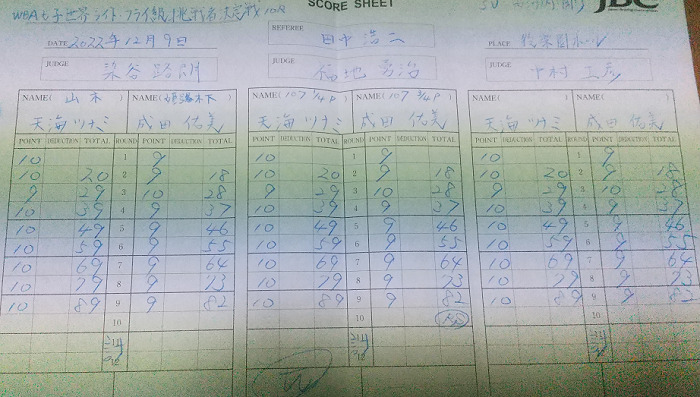 SCORE SHEET
JBC
WBA女子世界ライト・フライ級挑戦者決定戦 10R
REFEREE
田中浩二
DATE 2022年12月9日
PLACE 後楽園ホール
JUDGE 染谷路朗
JUDGE 福地勇治
JUDGE 中村
NAME( 山木 ) NAME( ) NAME( 107 3/4P ) NAME( 107 3/4P ) NAME( ) NAME( )
天海ツナミ 成田佑美 天海ツナミ 成田佑美 天海ツナミ 成田佑美
POINT DEDUCTION TOTAL ROUND POINT DEDUCTION TOTAL POINT DEDUCTION TOTAL ROUND POINT DEDUCTION TOTAL POINT DEDUCTION TOTAL ROUND POINT DEDUCTION TOTAL
10 1 9 10 1 9 10 1 9
10 20 2 9 18 10 20 2 9 18 10 20 2 9 18
9 29 3 10 28 9 29 3 10 28 9 29 3 10 28
10 39 4 9 37 10 39 4 9 37 10 39 4 9 37
10 49 5 9 46 10 49 5 9 46 10 49 5 9 46
10 59 6 9 55 10 59 6 9 55 10 59 6 9 55
10 69 7 9 64 10 69 7 9 64 10 69 7 9 64
10 79 8 9 73 10 79 8 9 73 10 79 8 9 73
10 89 9 9 82 10 89 9 9 82 10 89 9 9 82
10 10 10